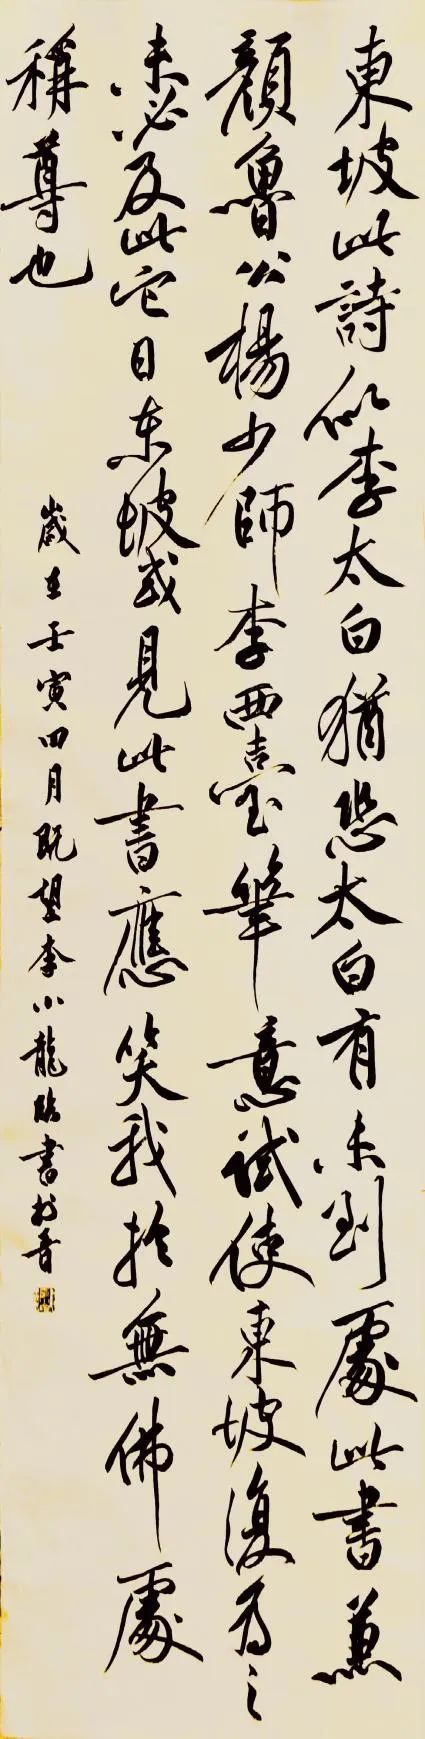 東坡此詩似李太白猶恐太白有未到處此書兼
顏魯公楊少師李西臺筆意試使東坡復為之
未必及此它日东坡或見此書應笑我於無佛處
稱尊也
歲在壬寅四月既望李小龍臨書於晉